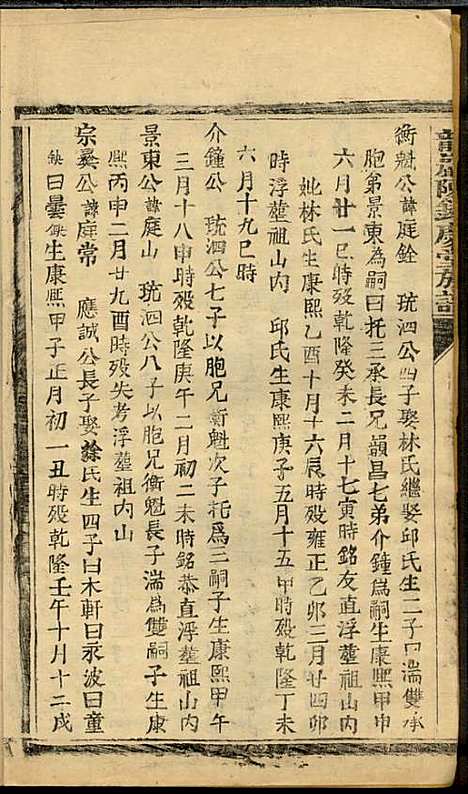 龍巖陳錢慶堂族譜
衡魁公諱庭銓 琉泗公四子娶林氏繼娶邱氏生二子曰湍雙承
胞弟景東為嗣曰托三承長兄韻昌七弟介鐘為嗣生康熙甲申
六月廿一巳時歿乾隆癸未二月十七寅時銘友直浮塟祖山內
妣林氏生康熙乙酉十月十六辰時歿雍正乙卯三月廿四卯
時浮塟祖山內 邱氏生康熙庚子五月十五甲時歿乾隆丁未
六月十九巳時
介鐘公 琉泗公七子以胞兄衡魁次子托為三嗣子生康熙甲午
三月十八申時歿乾隆庚午二月初二未時銘恭直浮塟祖山內
景東公諱庭山 琉泗公八子以胞兄衡魁長子湍為雙嗣子生康
熙丙申二月廿九酉時歿失考浮塟祖內山
宗爨公諱庭常 應誠公長子娶蜍氏生四子曰木軒曰永波曰童
缺曰曇缺生康熙甲子正月初一丑時歿乾隆壬午十月十二戌